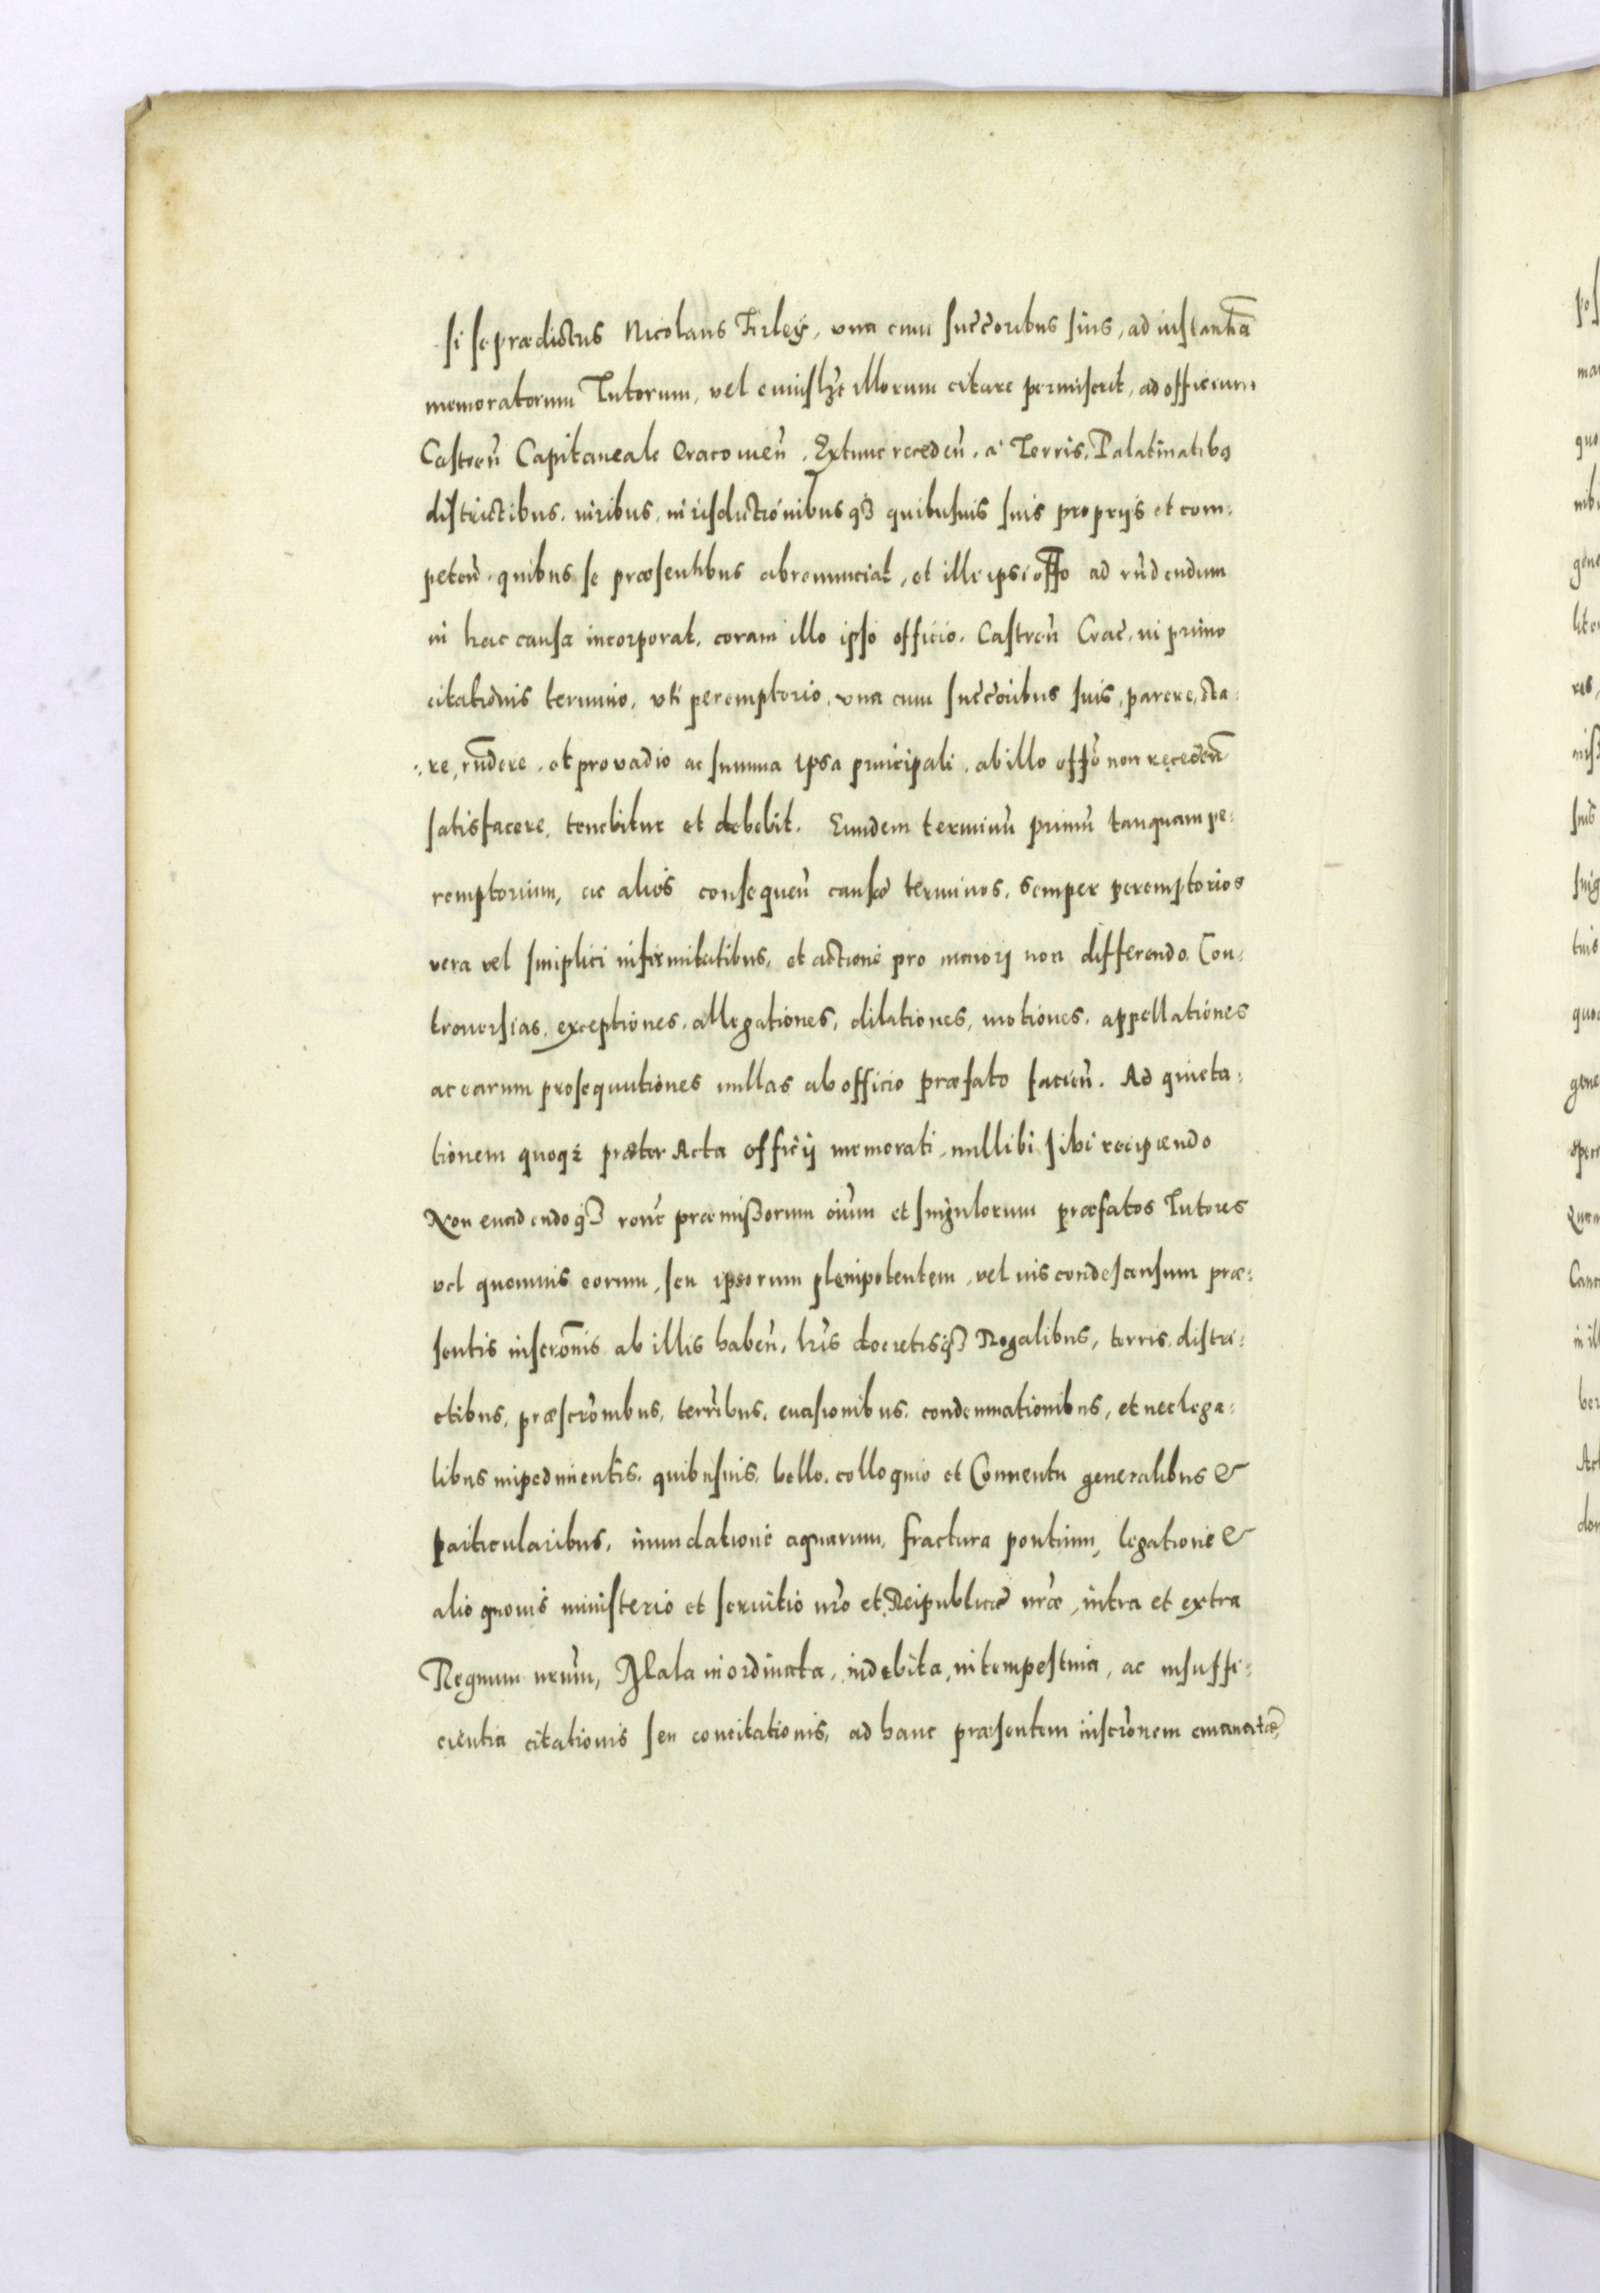 si se prædictus Nicolaus Firley, vna cum succōribus suis, ad instantiā
memoratorum Tutorum, vel cuiuslȝt illorum citare permiserit, ad officium
Castreñ Capitaneale Cracouieñ. Extunc recedeñ. a Terris, Palatinatibꝰ
districtibus, iuribus, iurisdictionibusqȝ quibusuis suis proprijs et com:
peteñ. quibus se præsentibus abrenunciat, et illi ipsi offo ad rñdendum
in hac causa incorporat. coram illo ipso officio. Castreñ Crac̃, in primo
citationis termino, vti peremptorio, vna cum succōribus suis, parere, sta:
:re, rñdere. et pro vadio ac summa ipsa principali, ab illo offō non recedeñ
satisfacere, tenebitur et debebit. Eundem terminū primū tanquam pe:
remptorium, ac alios consequeñ causæ terminos, semper peremptorios
vera vel simplici infirmitatibus, et actione pro maiori non differendo. Con:
trouersias, exceptiones, allegationes, dilationes, motiones, appellationes
ac earum prosequutiones nullas ab officio præfato facieñ. Ad quieta:
tionem quoqȝ præter Acta officij memorati, nullibi sibi recipiendo
Non euadendoqȝ rōne præmissorum oīum et singulorum præfatos Tutores
vel quemuis eorum, seu ipsorum plenipotentem, vel ius condescensum præ:
sentis inscrōnis ab illis habeñ, lr̃is decretisqȝ Regalibus, terris, distri:
ctibus, præscrōnibus, terr̃ibus, euasionibus, condemnationibus, et nec lega:
libus impedimentis, quibusuis, bello, colloquio et Conuentu generalibus &
particularibus, inundatione aquarum, fractura pontium, legatione &
alio quouis ministerio et seruitio nr̃o et Reipublicæ nr̃æ, intra et extra
Regnum nr̃um, Mala inordinata, indebita, intempestiua, ac insuffi:
cientia citationis seu concitationis, ad hanc præsentem inscrōnem emanatæ,